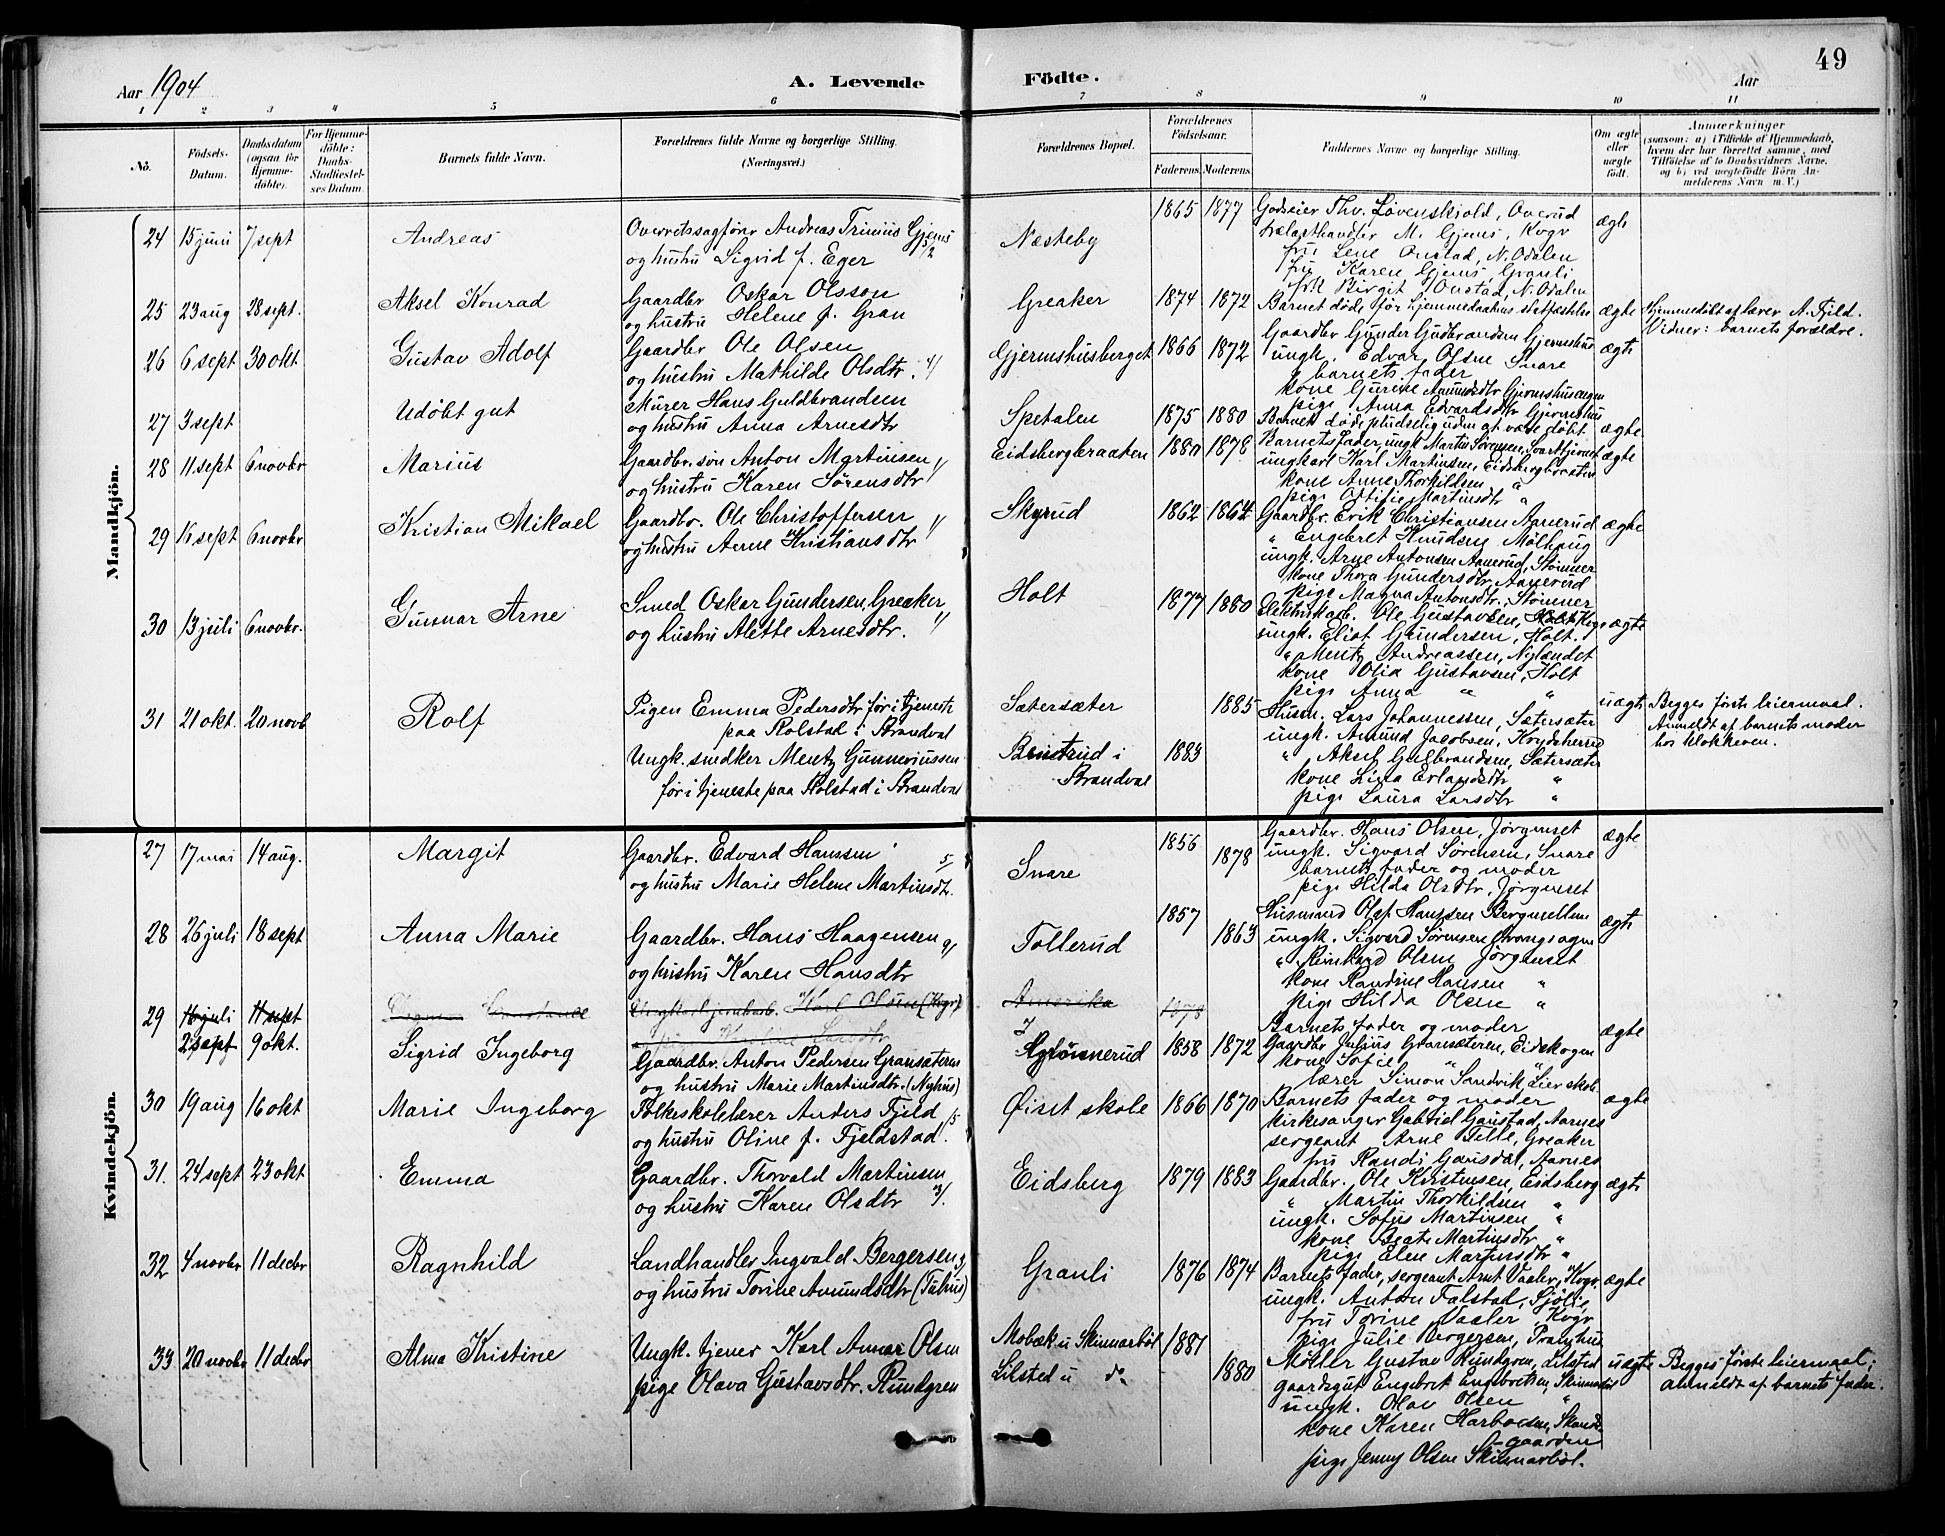 49
Aar 1904
A. Levende Födte.
Aar
1 2 3 4 5 6 7 8 9 10 11
No.
Födsels-Datum.
Daabsdatum (ogsaa for Hjemmedöbte).
For Hjemmedöbte: Daabs-Stadfæstelses Datum.
Barnets fulde Navn.
Forældrenes fulde Navne og borgerlige Stilling. (Næringsvei.)
Forældrenes Bopæl.
Forældrenes Födselsaar.
Faderens. Moderens.
Faddernes Navne og borgerlige Stilling.
Om ægte eller uægte födt.
Anmærkninger (saasom: a) i Tilfælde af Hjemmedaab, hvem der har forrettet samme, med Tilföielse af to Daabsvidners Navne, og b) ved uægtefödte Börn Anmelderens Navn m. V.)
Mandkjön.
24 15 juni 7 sept Andreas
Overretssagfører Andreas Trinius Gjems
og hustru Sigrid f. Eger
Næsteby 1865 1877
Godseier Thv. Løvenskjold, Overud
trælasthandler M. Gjems, Kvgr
fru Lene Onstad, N. Odalen
fru Karen Gjems, Granli
frk Birgit Onstad, N. Odalen
ægte
25 23 aug 28 sept. Aksel Konrad
Gaardbr Oskar Olsson
og hustru Helene f. Gran
Greaker 1874 1872
Barnet døde før hjemmedaabens stadfæstelse
ægte
Hjemmedøbt af lærer A. Fjeld.
Vidner: barnets forældre.
26 6 sept 30 okt Gustav Adolf
Gaardbr Ole Olsen
og hustru Mathilde Olsdtr. 4/
Gjermshusberget 1866 1872
Gaardbr Gunder Gudbrandsen Gjermshus
ungk. Edvar Olsen Snare
barnets fader
kone Gurine Amundsdtr Gjermshusengen
pige Anna Edvardsdtr Gjermshus
ægte
27 3 sept Udøbt gut
Murer Hans Guldbrandsen
og hustru Anna Arnesdtr
Spetalen 1875 1880
Barnet døde pludselig uden at være døbt.
ægte
28 11 sept 6 novbr Marius
Gaardbr. søn Anton Martinsen
og hustru Karen Sørensdtr
Eidsbergbraaten 1880 1878
Barnets fader, ungk Martin Sørensen, Svarttjernet
ungkarl Karl Martinsen, Eidsbergbraaten
kone Anne Thorkildsen
pige Ottilie Martinsdtr "
ægte
29 16 sept 6 novbr Kristian Mikael
Gaardbr. Ole Christoffersen
og hustru Anne Kristiansdtr
Skyrud 1862 1864
Gaardbr. Erik Christiansen Aanerud
" Engebret Knudsen Mølhaug
ungk. Arne Antonsen Aanerud, Stømner
kone Thora Gundersdtr, Aanerud
pige Magna Antonsdtr. Stømner
ægte
30 13 juli 6 novbr. Gunnar Arne
Smed Oskar Gundersen, Greaker
og hustru Alette Arnesdtr.
Holt 1877 1880
Elektrikarb. Ole Gustavsen,
ungk. Eliot Gundersen, Holt.
" Mentz Andreassen, Nylændet
kone Olia Gustavsen, Holt
pige Anna " "
ægte
31 21 okt. 20 novb Rolf
Pigen Emma Pedersdtr før i tjeneste
paa Rolstad i Brandval
Ungk. snedker Mentz Gunneriussen
før i tjeneste paa Rolstad i Brandval
Sætersæter 1885
Brustrud i Brandval 1883
Husm. Lars Johannessen, Sætersæter
ungk. Amund Jacobsen, Krydsherred
" Aksel Gulbrandsen, Sætersæter
kone Lina Erlandsdtr "
pige Laura Larsdtr "
uægte
Begges første leiermaal.
Anmeldt af barnets moder
hos klokkeren.
Kvindekjön.
27 17 mai 14 aug. Margit
Gaardbr. Edvard Hanssen 5/
og hustru Marie Helene Martinsdtr.
Snare 1856 1878
Gaardbr. Hans Olsen, Jørgenset
ungk. Sigvard Sørensen, Snare
barnets fader og moder
pige Hilda Olsdtr, Jørgenset
ægte
28 26 juli 18 sept Anna Marie
Gaardbr. Hans Haagensen 9/
og hustru Karen Hansdtr
Tollerud 1857 1863
Husmand Olof Hanssen Bergmellem
ungk. Sigvard Sørensen
" Reinhard Olsen Jørgenset
kone Randine Hansen "
pige Hilda Olsen "
ægte
29 16 juli 11 sept
Karl Olsen (Kvgr)
Amerika 1878
23 sept 9 okt. Sigrid Ingeborg
Gaardbr. Anton Pedersen Gransæteren
og hustru Marie Martinsdtr. (Nyhus)
1858 1872
Barnets fader og moder
Gaardbr Julius Gransæteren, Eidskogen
kone Sofie " "
lærer Simon Sandvik, Lier skole
ægte
30 19 aug 16 okt Marie Ingeborg
Folkeskolelærer Anders Fjeld
og hustru Oline f. Fjeldstad.
Øiset skole 1866 1870
Barnets fader og moder
kirkesanger Gabriel Gaustad, Aarnes
sergeant Arne Tille, Greaker
fru Randi Gaustad, Aarnes
ægte
31. 24 sept 23 okt Emma
Gaardbr. Thorvald Martinsen
og hustru Karen Olsdtr 3/.
Eidsberg 1879 1883
Gaardbr. Ole Kristensen, Eidsberg
" Martin Thorkildsen "
ungk. Sofus Martinsen "
kone Beate Martinsdtr "
pige Elen Martinsdtr "
ægte
32 4 novbr 11 decbr Ragnhild
Landhandler Ingvald Bergersen
og hustru Torine Amundsdtr
Granli 1876 1874
Barnets fader, sergeant Arnt Vaaler, Kvgr
ungk. Anton Falstad, Sjølie,
fru Torine Vaaler, Kvgr
pige Julie Bergersen, Pramhus
ægte
33 20 novbr 11 decbr Alma Kristine
Ungk. tjener Karl Annar Olsen
pige Olava Gustavsdtr. Rundgren
Mobæk u Skinnarbøl 1881
Lilsted u do 1880
Møller Gustav Rundgren, Lilsted
gaardsgut Engebret Engebretsen, Skinnarbøl
ungk. Olav Olsen "
kone Karen Harboesen, Skandsgaarden
pige Jenny Olsen Skinnarbøl.
uægte
Begges første leiermaal;
anmeldt af barnets fader.